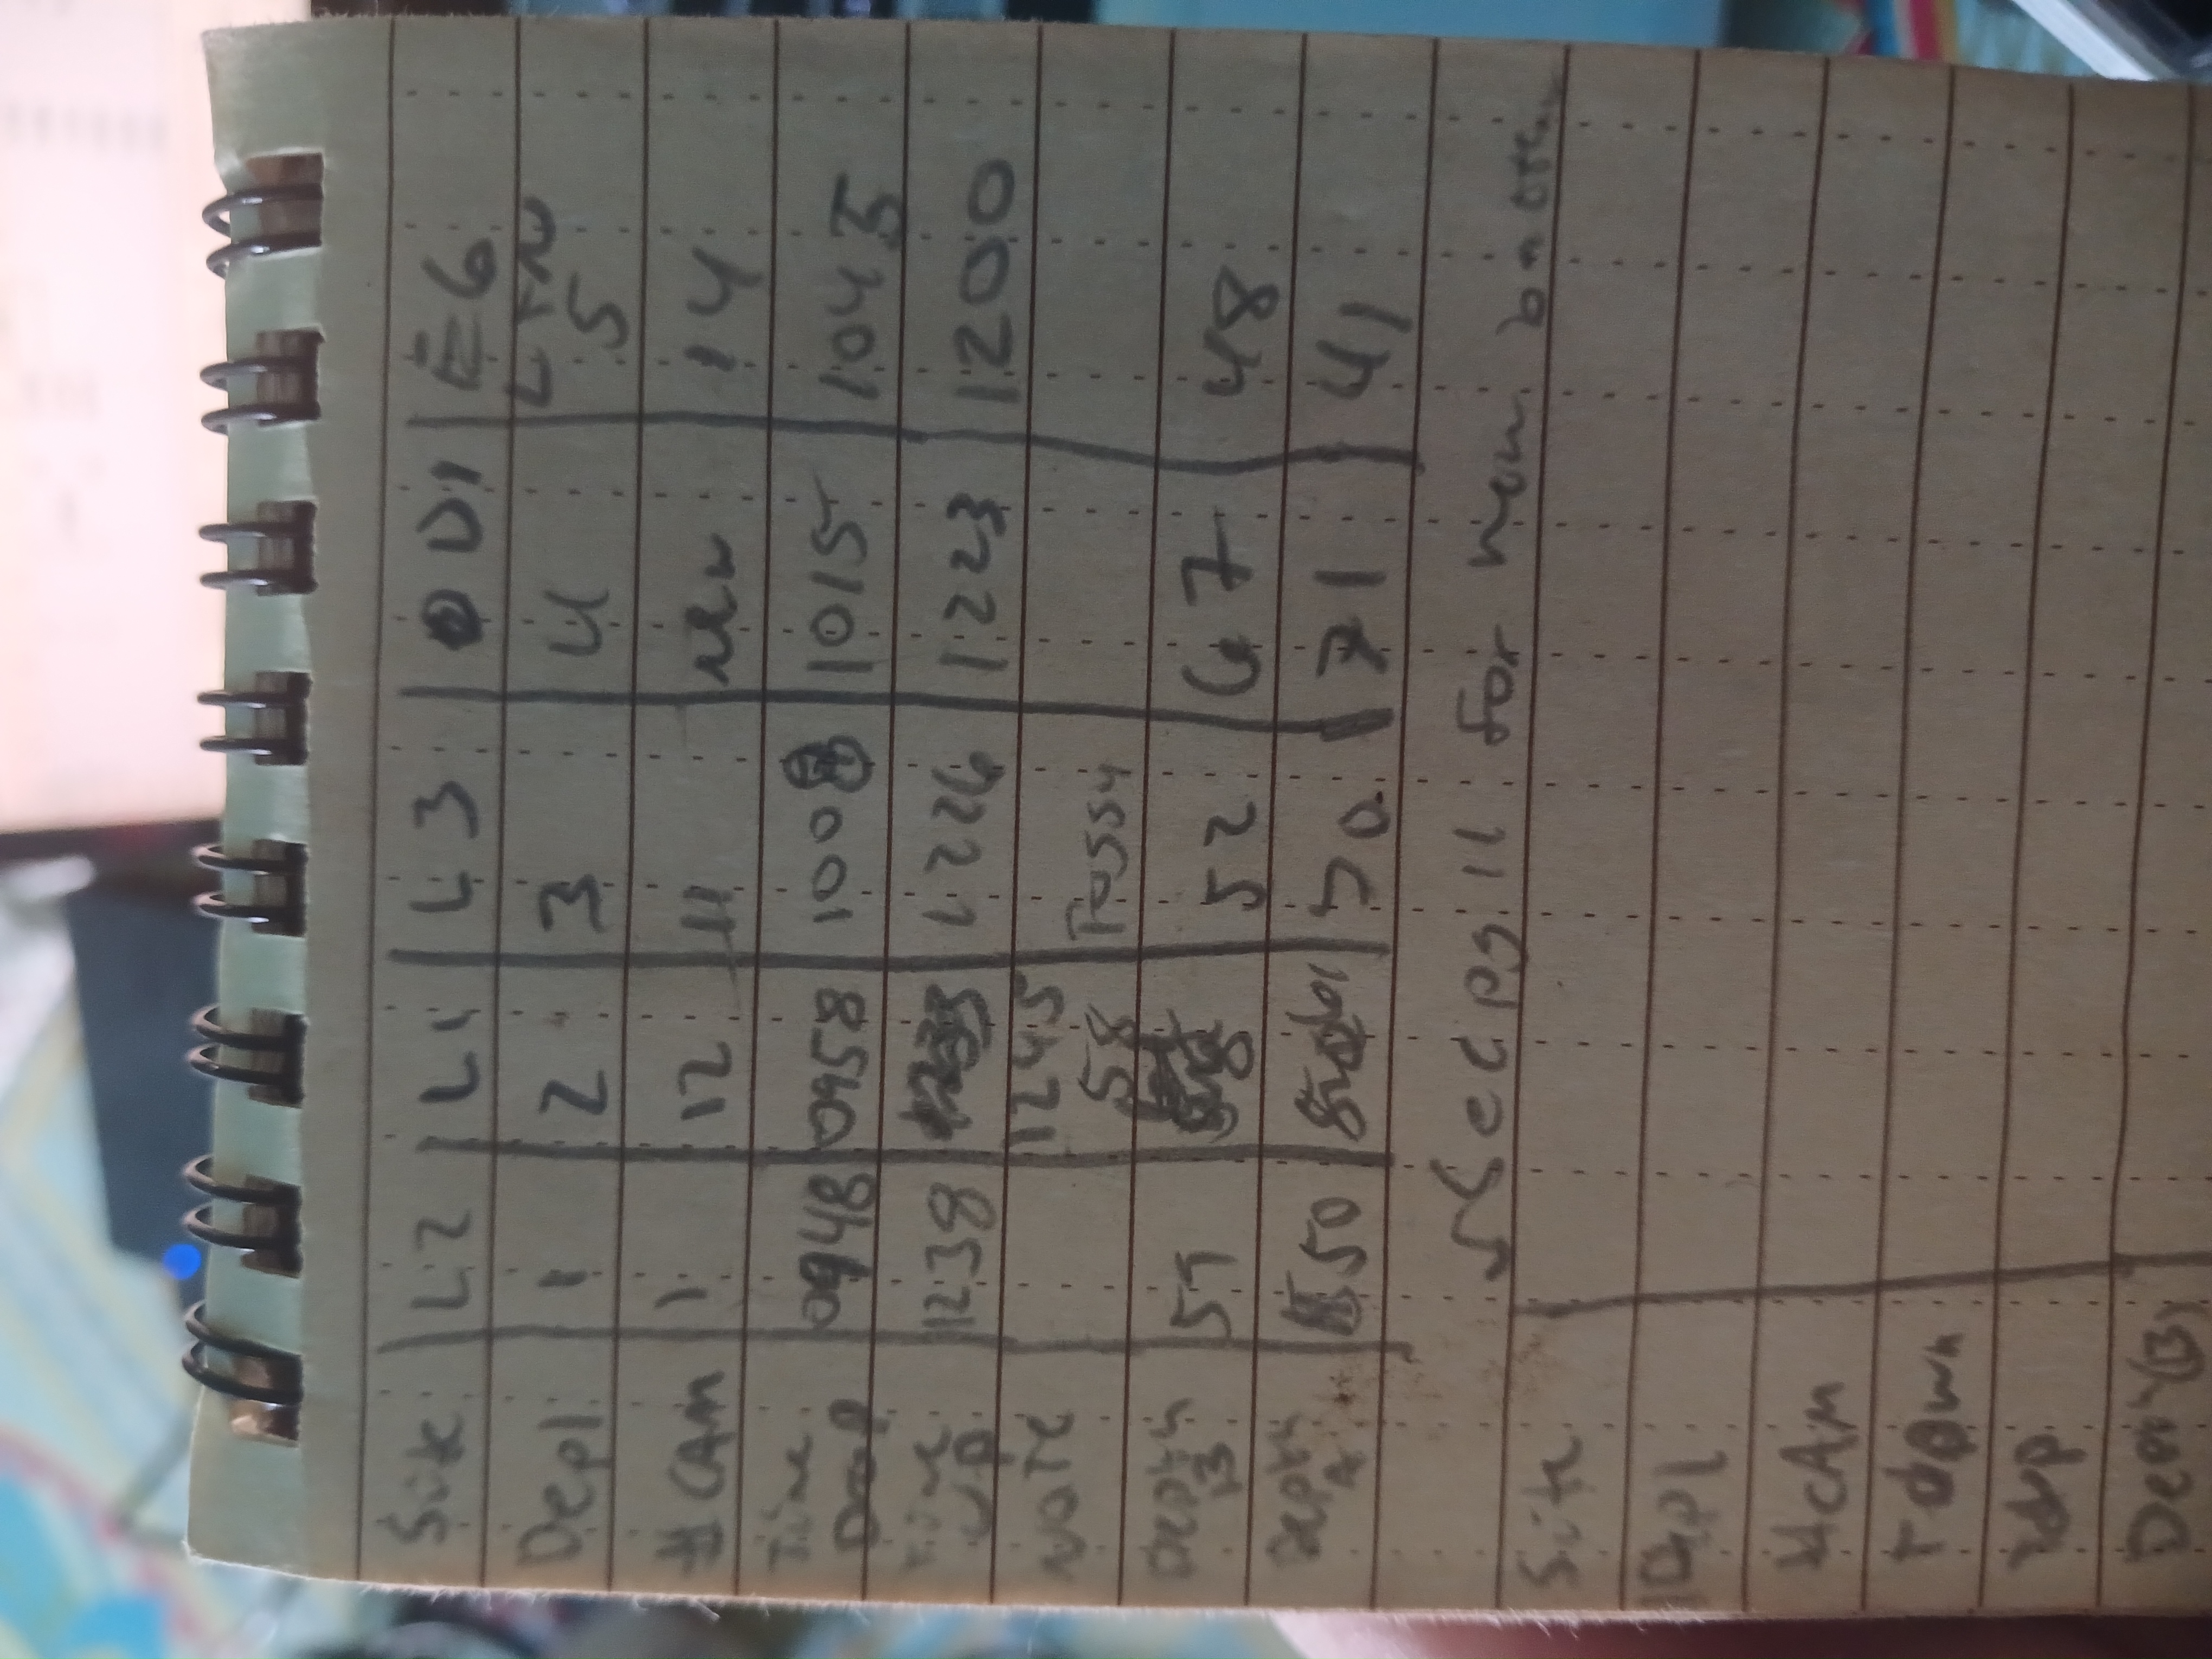 Site L2 L1 L3 D1 E6
Depl. 1 2 3 4 5
# CAM 1 12 11 14
Time Drop 0948 0958 1008 1015 1045
Time up 1238 1226 1223 1200
NOTE 1245
58 Possy
Depth B 52 67 48
Depth A 50 71 41
See pg 11 for new
Site
Depl
# CAM
T down
T up
Depth (B)